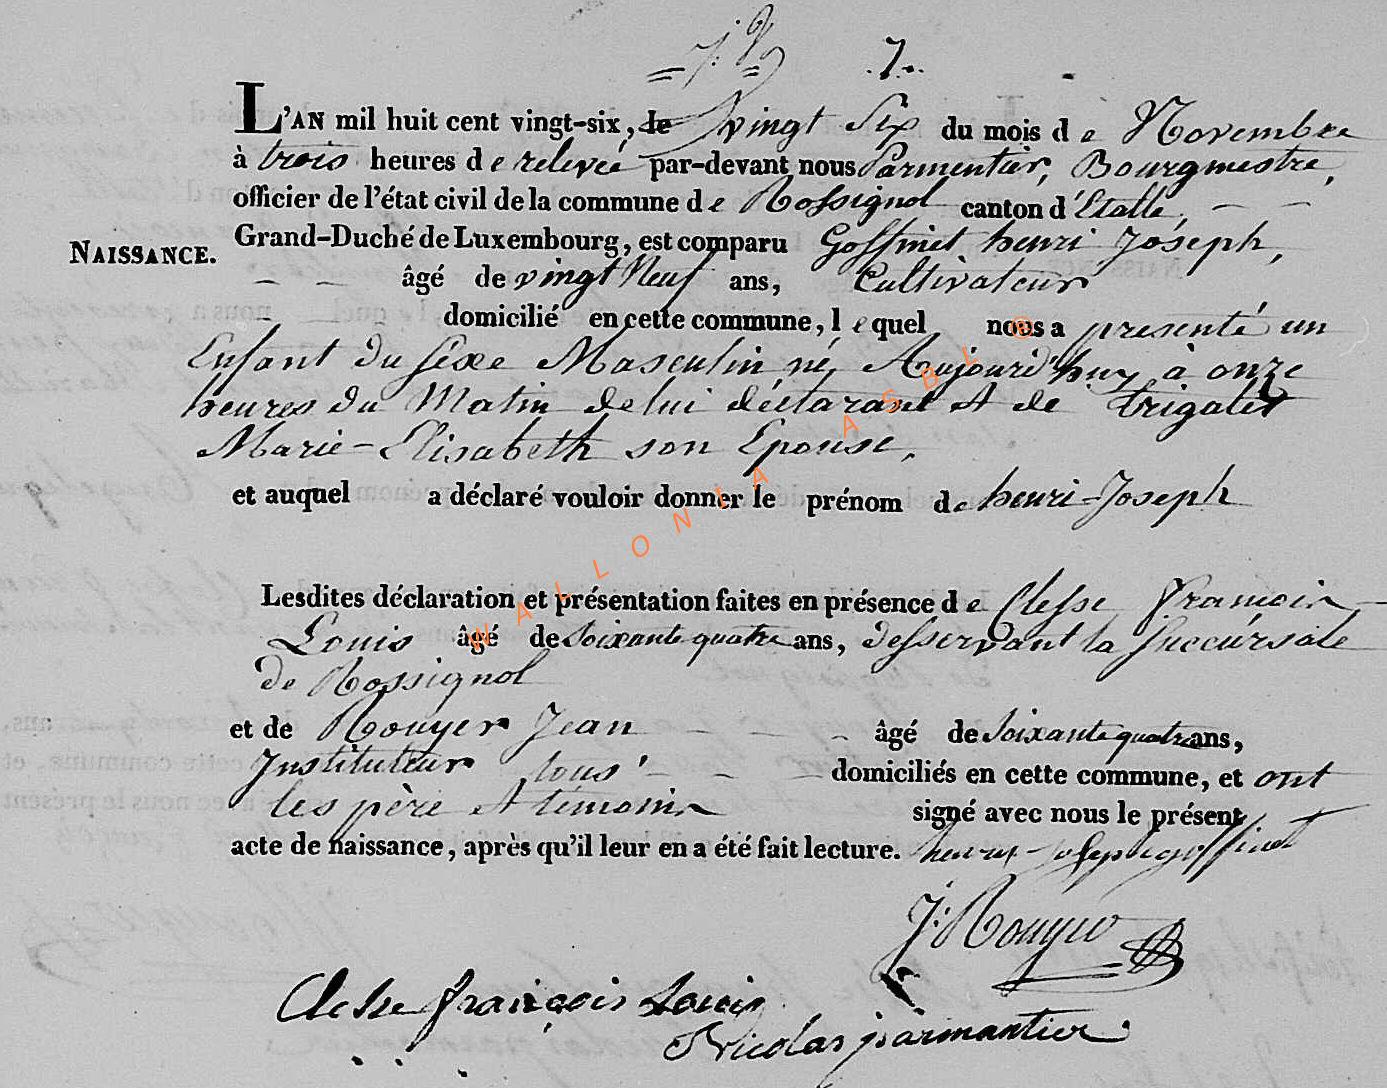 7.
L'AN mil huit cent vingt-six, le vingt Six du mois de Novembre
à trois heures de relevée par-devant nous Parmentier, Bourgmestre,
officier de l'état civil de la commune de Rossignol canton d'Etalle,
NAISSANCE.
Grand-Duché de Luxembourg, est comparu Goffinet henri Joseph,
âgé de vingt Neuf ans, Cultivateur
domicilié en cette commune, lequel nous a presenté un
Enfant du sexe Masculin né, Aujourd'huy à onze
heures du Matin de lui déclarant et de trigalet
Marie-Elisabeth son Epouse,
et auquel a déclaré vouloir donner le prénom de henri-Joseph
Lesdites déclaration et présentation faites en présence de Clesse francois
Louis âgé de Soixante quatre ans, desservant la succursale
de Rossignol
et de Rouyer Jean âgé de Soixante quatre ans,
Instituteur tous domiciliés en cette commune, et ont
les père et témoins signé avec nous le présent
acte de naissance, après qu'il leur en a été fait lecture. henri-Joseph goffinet
J: Rouyer
Clesse françois Louis
Nicolas parmantier
WALLONIA ASBL ®